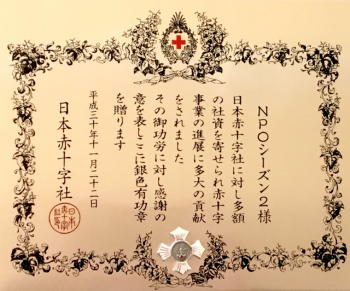 NPOシーズン2様
日本赤十字社に対し多額
の社資を寄せられ赤十字
事業の進展に多大の貢献
をされました
その御功労に対し感謝の
意を表しここに銀色有功章
を贈ります
平成三十年十一月二十二日
日本赤十字社